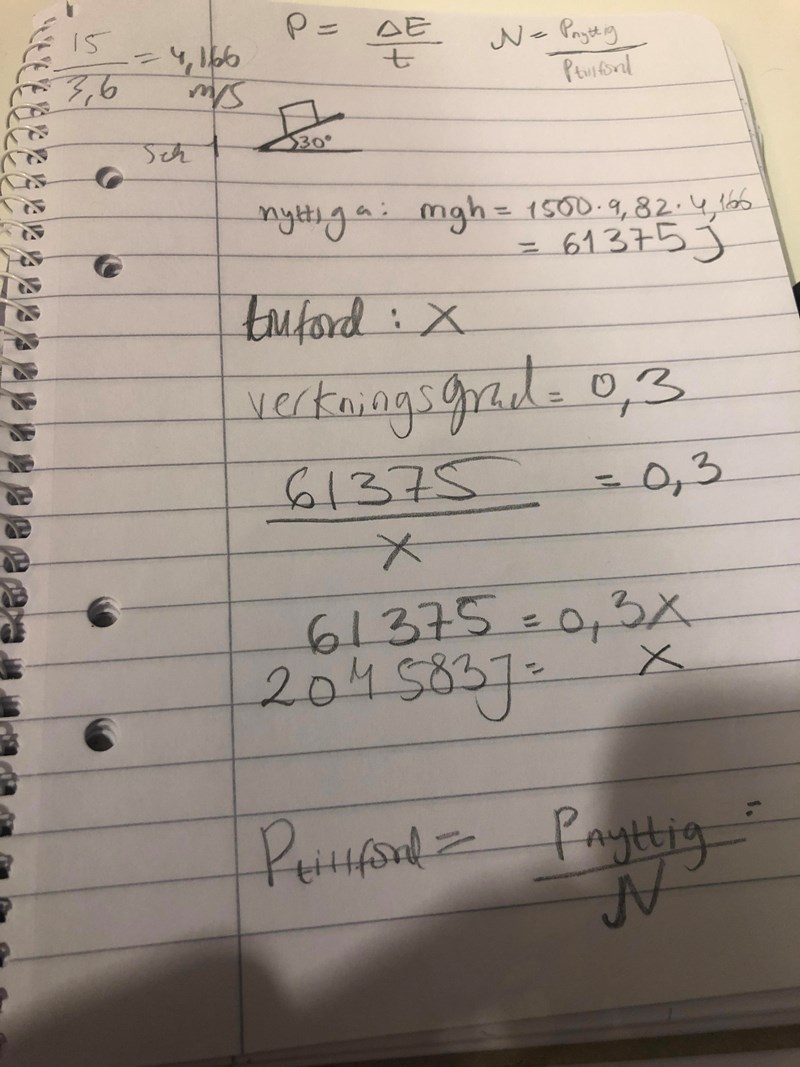 15/3,6 = 4,166 m/s
P = ΔE/t
N = Pnyttig/Ptillförd
30°
nyttiga: mgh = 1500·9,82·4,166
= 61375 J
tillförd : X
verkningsgrad = 0,3
61375/X = 0,3
61375 = 0,3X
204583J = X
Ptillförd = Pnyttig/N =